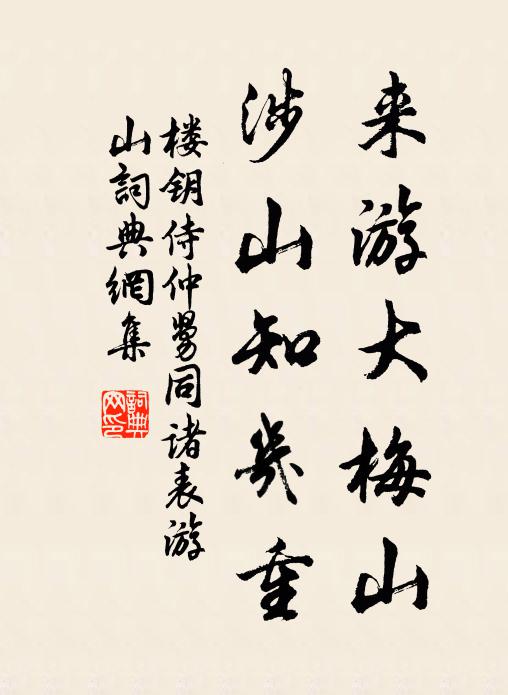 来游大梅山
涉山知几重
楼钥侍仲舅同诸表游
山詞典網集
詞典
网印